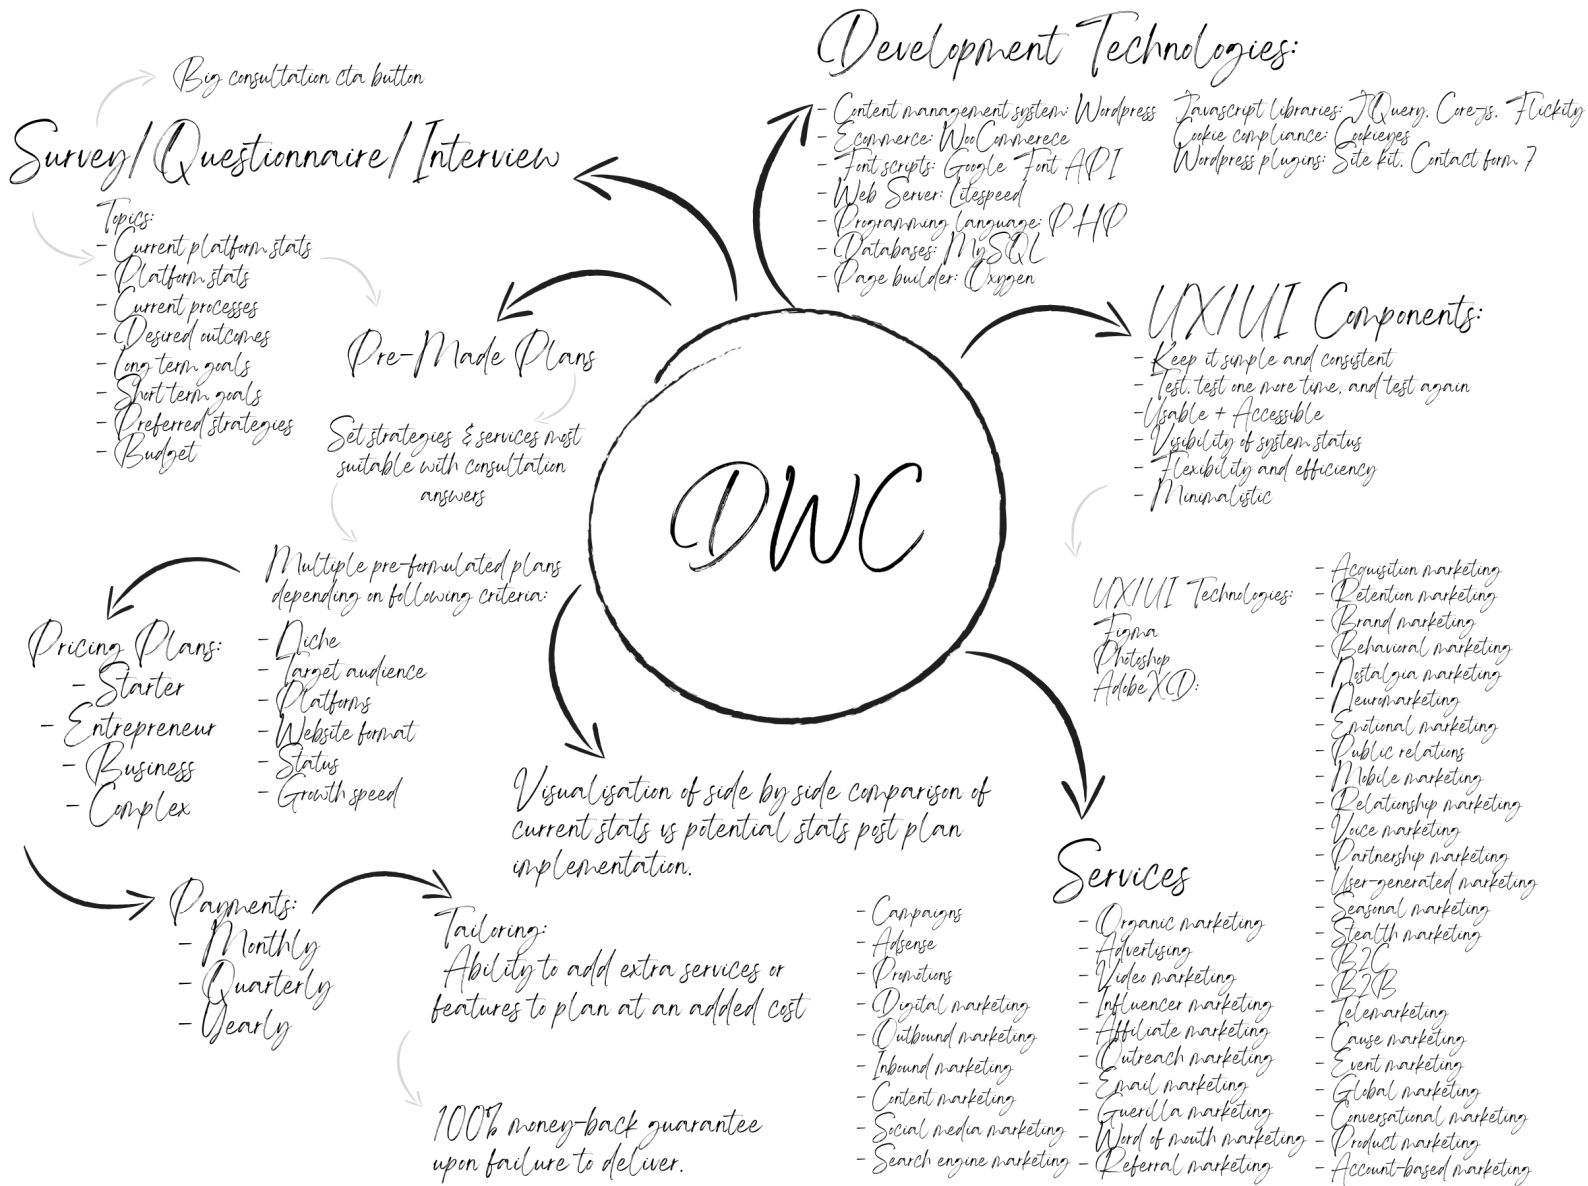 Big consultation cta button
Survey/Questionnaire/Interview
Topics:
- Current platform stats
- Platform stats
- Current processes
- Desired outcomes
- Long term goals
- Short term goals
- Preferred strategies
- Budget
Pre-Made Plans
Set strategies & services most
suitable with consultation
answers
Multiple pre-formulated plans
depending on following criteria:
- Niche
- Target audience
- Platforms
- Website format
- Status
- Growth speed
Pricing Plans:
- Starter
- Entrepreneur
- Business
- Complex
Payments:
- Monthly
- Quarterly
- Yearly
Tailoring:
Ability to add extra services or
features to plan at an added cost
100% money-back guarantee
upon failure to deliver.
DWC
Visualisation of side by side comparison of
current stats vs potential stats post plan
implementation.
Development Technologies:
- Content management system: Wordpress
- Ecommerce: WooCommerece
- Font scripts: Google Font API
- Web Server: Litespeed
- Programming language: PHP
- Databases: MySQL
- Page builder: Oxygen
Javascript libraries: JQuery, Core-js, Flickity
Cookie compliance: Cookieyes
Wordpress plugins: Site kit, Contact form 7
UX/UI Components:
- Keep it simple and consistent
- Test, test one more time, and test again
-Usable + Accessible
- Visibility of system status
- Flexibility and efficiency
- Minimalistic
UX/UI Technologies:
Figma
Photoshop
Adobe XD:
Services
- Campaigns
- Adsense
- Promotions
- Digital marketing
- Outbound marketing
- Inbound marketing
- Content marketing
- Social media marketing
- Search engine marketing
- Organic marketing
- Advertising
- Video marketing
- Influencer marketing
- Affiliate marketing
- Outreach marketing
- Email marketing
- Guerilla marketing
- Word of mouth marketing
- Referral marketing
- Acquisition marketing
- Retention marketing
- Brand marketing
- Behavioral marketing
- Nostalgia marketing
- Neuromarketing
- Emotional marketing
- Public relations
- Mobile marketing
- Relationship marketing
- Voice marketing
- Partnership marketing
- User-generated marketing
- Seasonal marketing
- Stealth marketing
- B2C
- B2B
- Telemarketing
- Cause marketing
- Event marketing
- Global marketing
- Conversational marketing
- Product marketing
- Account-based marketing